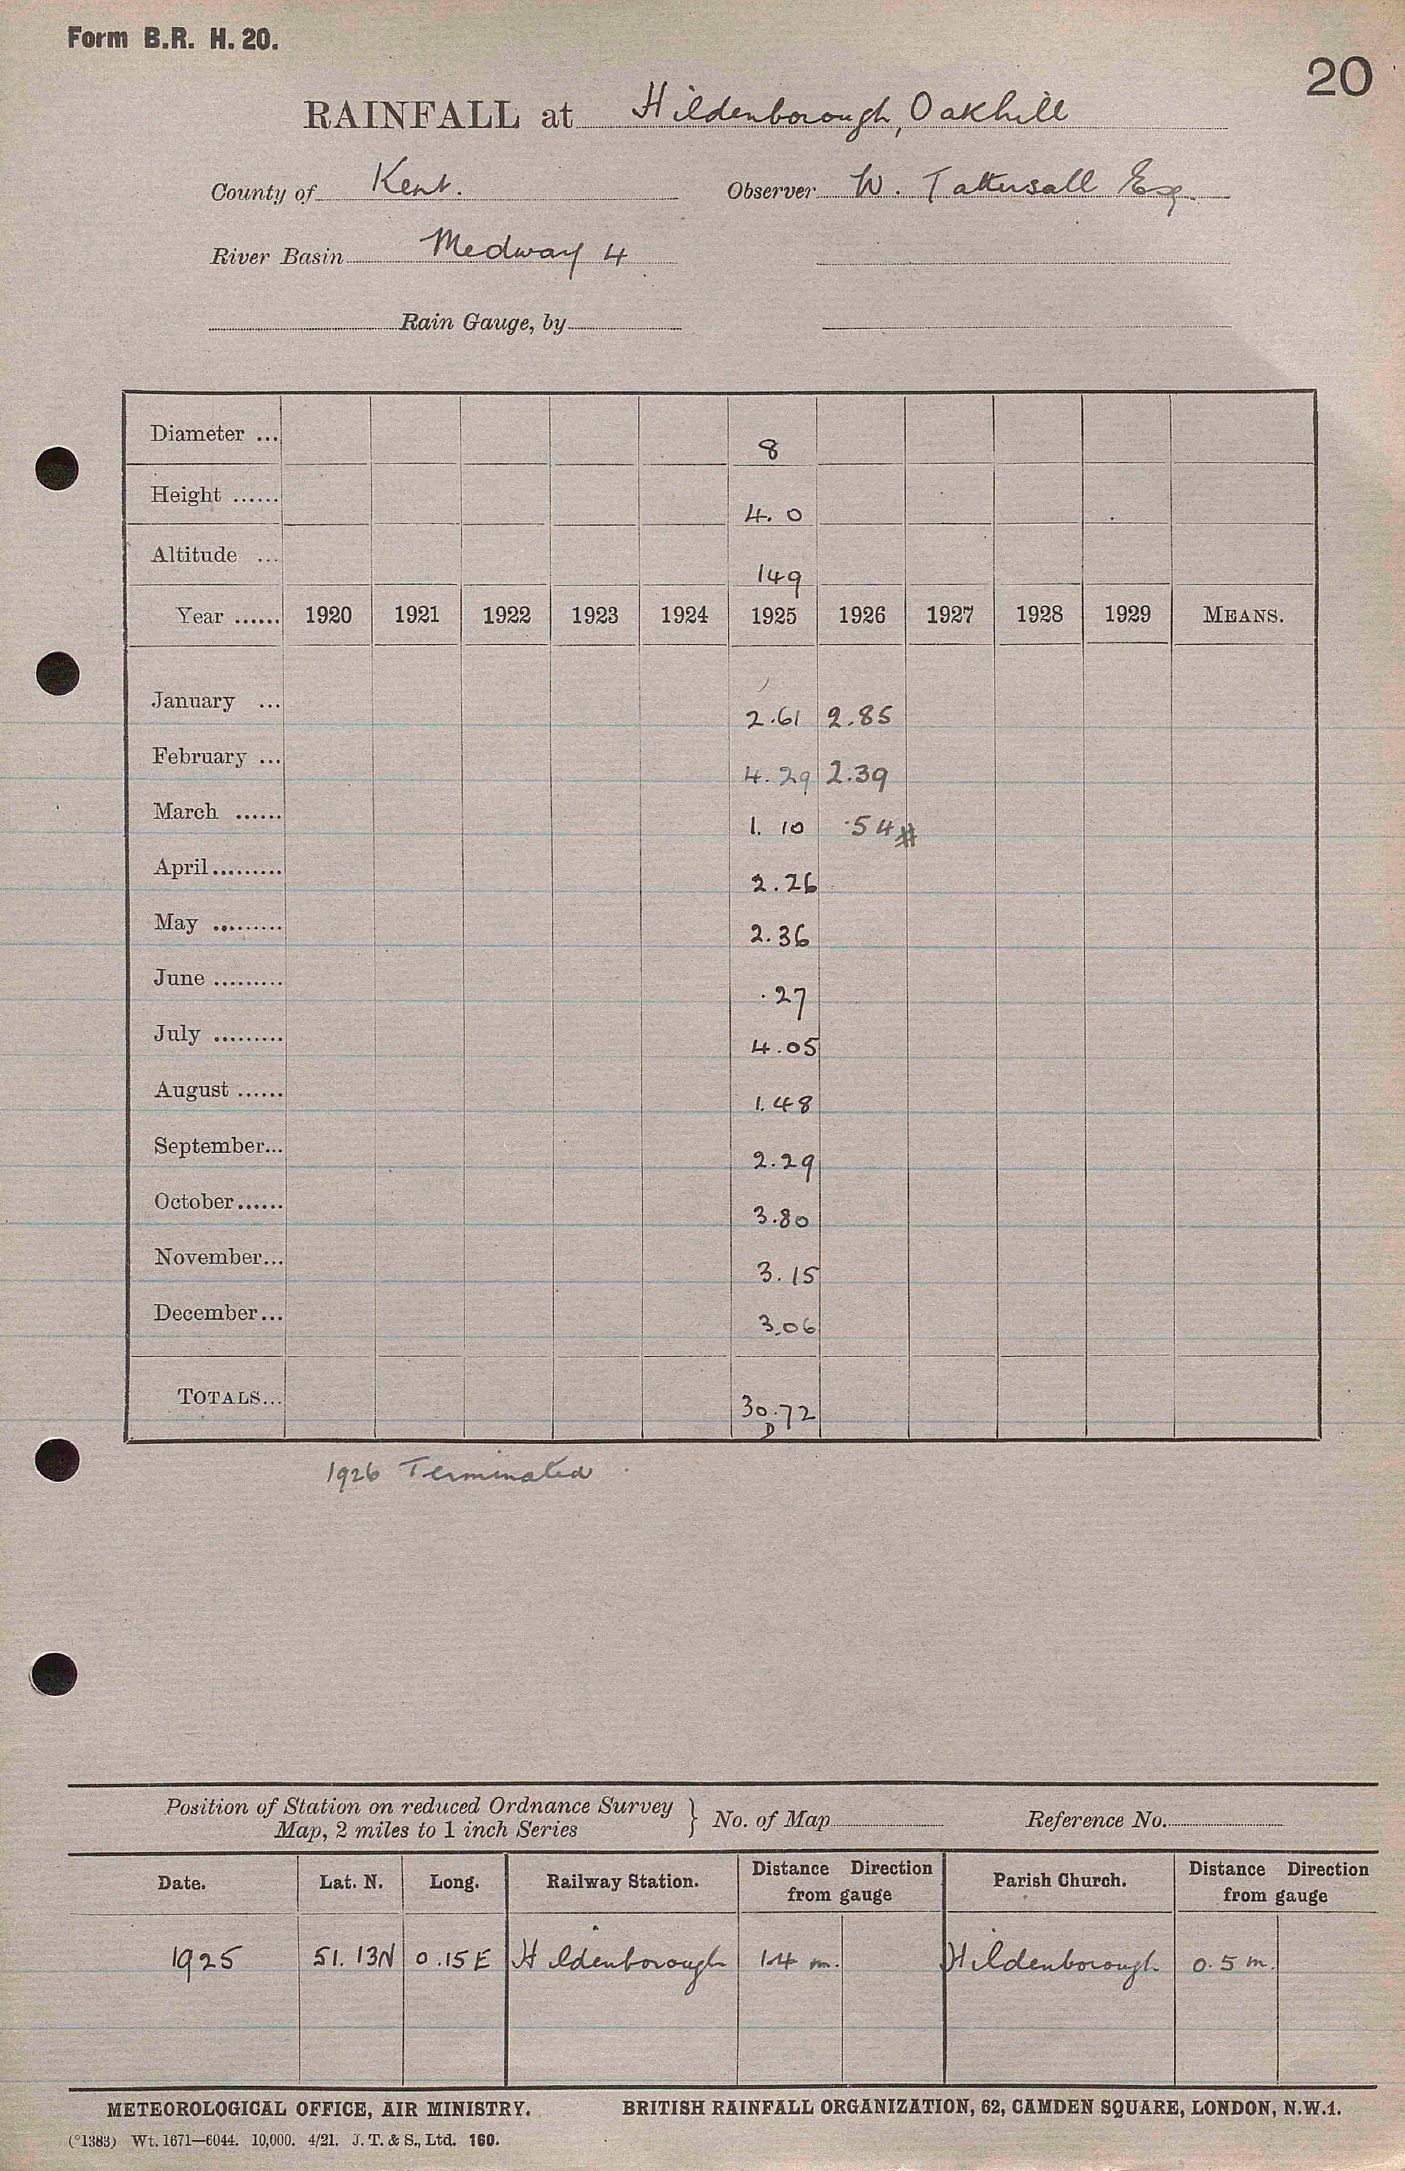 Form B.R. H. 20.
20
RAINFALL at Hildenborough, Oakhill
County of Kent. Observer W. Tattersall Esq.
River Basin Medway 4
Rain Gauge, by
Diameter ... 8
Height ...... 4.0
Altitude ... 149
Year ...... 1920 1921 1922 1923 1924 1925 1926 1927 1928 1929 MEANS.
January ... 2.61 2.85
February ... 4.29 2.39
March ...... 1.10 .54 #
April......... 2.26
May ......... 2.36
June ......... .27
July ......... 4.05
August ...... 1.48
September... 2.29
October...... 3.80
November... 3.15
December... 3.06
TOTALS... 30.72
D
1926 Terminated
Position of Station on reduced Ordnance Survey
Map, 2 miles to 1 inch Series } No. of Map Reference No.
Date. Lat. N. Long. Railway Station. Distance Direction from gauge Parish Church. Distance Direction from gauge
1925 51.13N 0.15E Hildenborough 1.4 m. Hildenborough 0.5 m.
METEOROLOGICAL OFFICE, AIR MINISTRY. BRITISH RAINFALL ORGANIZATION, 62, CAMDEN SQUARE, LONDON, N.W.1.
(°1383) Wt. 1671—6044. 10,000. 4/21. J. T. & S., Ltd. 160.